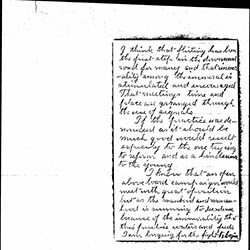 I think that flirting has been
the first step in the downward
road for many and that immor-
ality among the immoral is
stimulated and encouraged
That meetings time and
place are arranged through
the use of signals.
If the practice was de-
nounced as it should be
much good would result
especially to the one trying
to reform and as a hindrance
to the young
I know that an open
above board campaign would
meet with great opposition
but as the
because of the immorality
this practice
I am hoping for the fight to begin